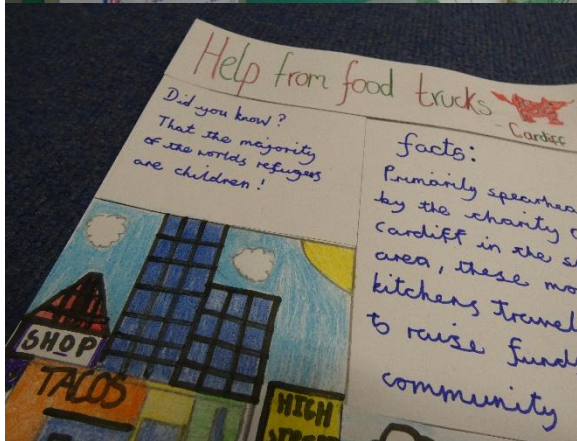 Help from food trucks
- Cardiff
Did you know?
That the majority
of the worlds refugees
are children!
facts:
Primarily
by the charity
Cardiff in the
area, these
kitchens travel
to raise
community
SHOP
TACOS
HIGH